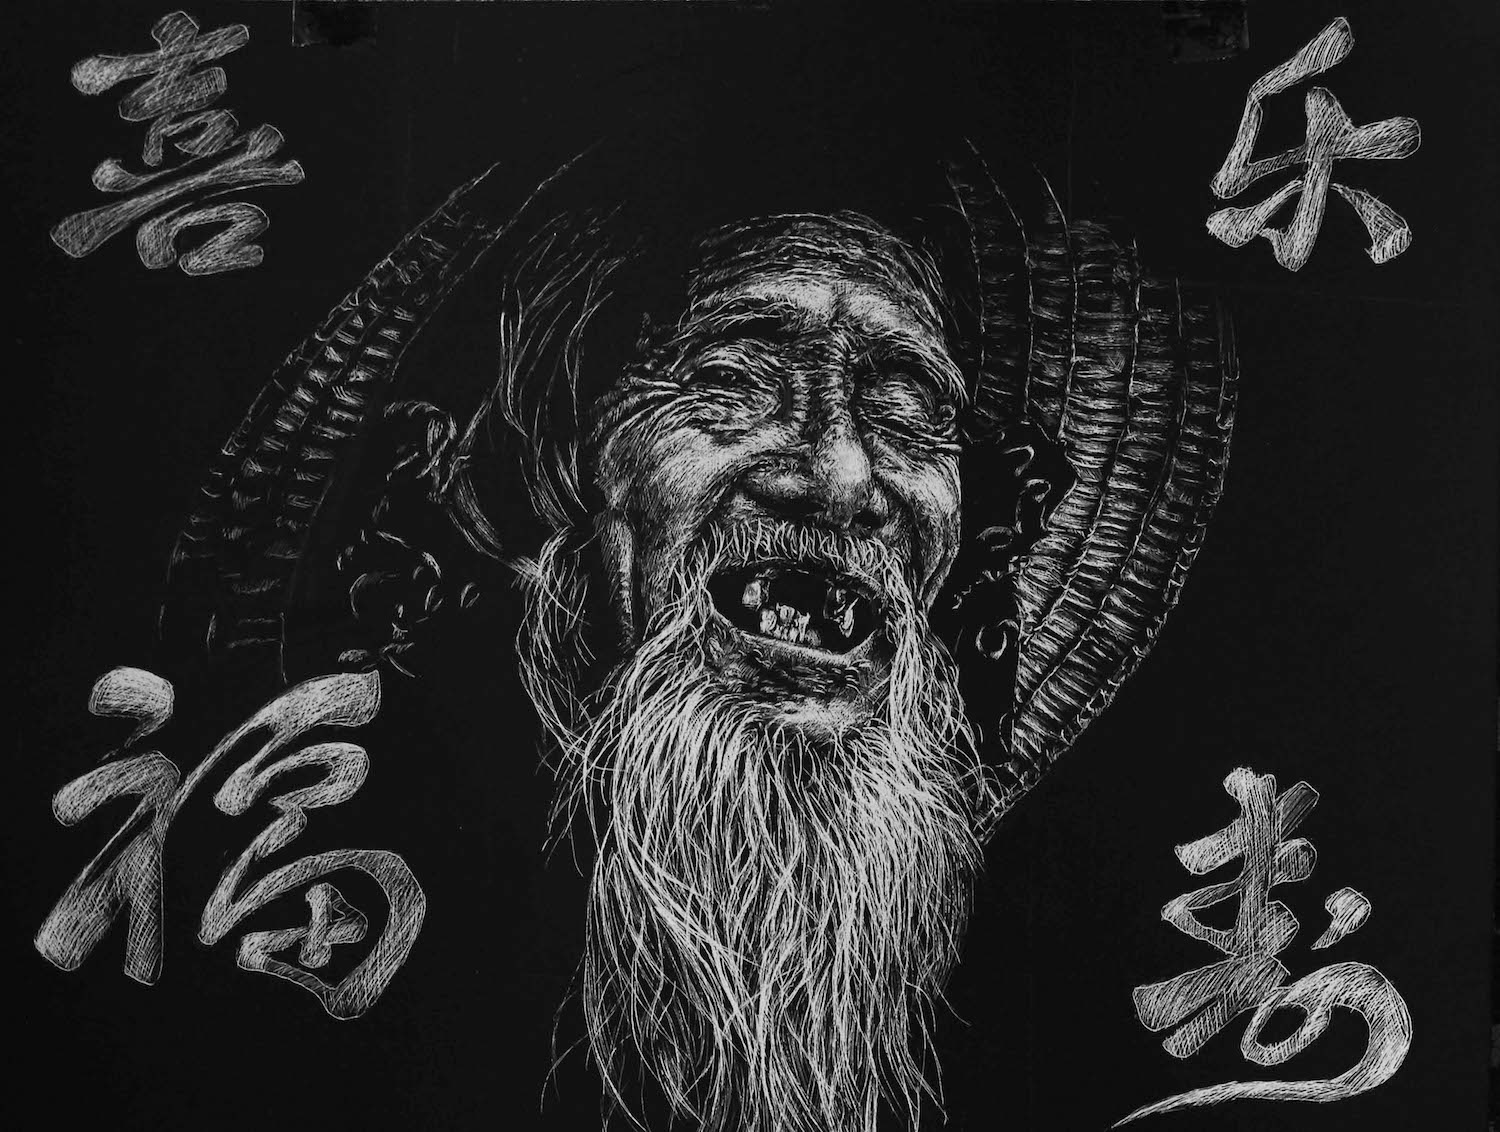 喜
乐
福
寿